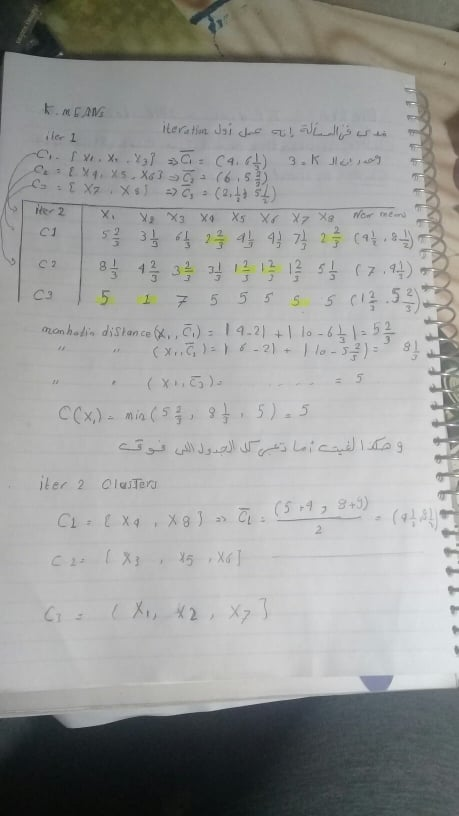 K-MEANS
معطى فى المسألة انه عمل أول iteration
iter 1
C1 = { X1, X2, X3 } ⇒ C̅1 = (4, 6 1/3) 3 = K
C2 = { X4, X5, X6 } ⇒ C̅2 = (6, 5 2/3)
C3 = { X7, X8 } ⇒ C̅3 = (2 1/2, 5 1/2)
iter 2 X1 X2 X3 X4 X5 X6 X7 X8 New means
C1 5 2/3 3 1/3 6 1/3 2 2/3 4 1/3 4 1/3 7 1/3 2 2/3 (4 1/2, 8 1/2)
C2 8 1/3 4 2/3 3 2/3 3 1/3 1 2/3 1 2/3 5 1/3 (7, 4 1/3)
C3 5 1 7 5 5 5 5 5 (1 2/3, 5 2/3)
manhatin distance (X1, C̅1) = |4-2| + |10-6 1/3| = 5 2/3
" " (X1, C̅2) = |6-2| + |10-5 2/3| = 8 1/3
" " (X1, C̅3) = ..... = 5
C(X1) = min (5 2/3, 8 1/3, 5) = 5
وهكذا لغيت أما تعبى كل الجدول اللى فوق
iter 2 Clusters
C1 = { X4, X8 } ⇒ C̅1 = (5+4, 8+9) / 2 = (4 1/2, 8 1/2)
C2 = { X3, X5, X6 }
C3 = { X1, X2, X7 }